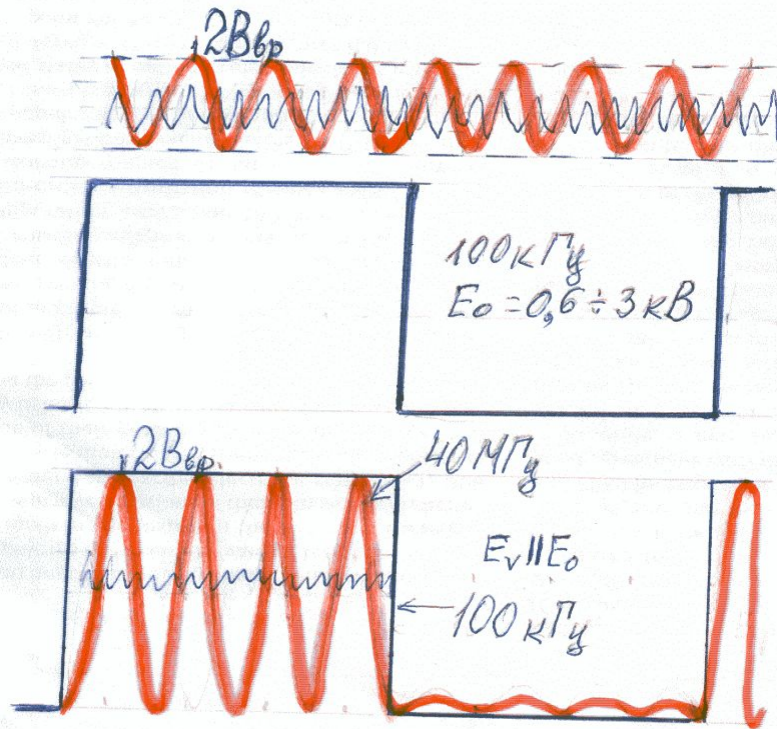 2Ввр
100кГц
E₀ = 0,6 ÷ 3 кВ
2Ввр.
40МГц
Eᵥ || E₀
100кГц